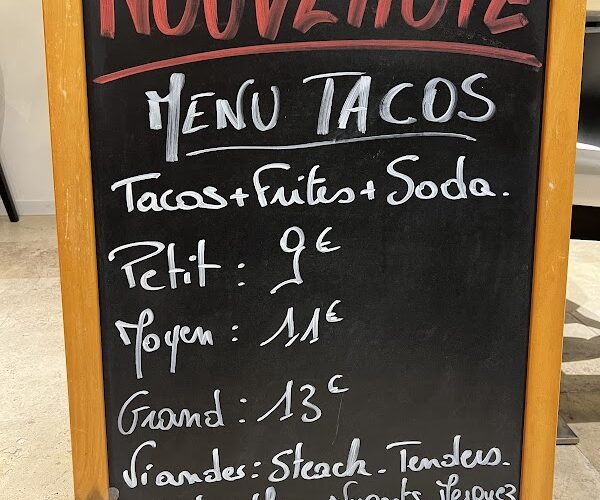 NOUVEAUTÉ
MENU TACOS
Tacos+Frites+Soda.
Petit : 9€
Moyen : 11€
Grand : 13€
Viandes : Steack - Tenders.
Nuggets